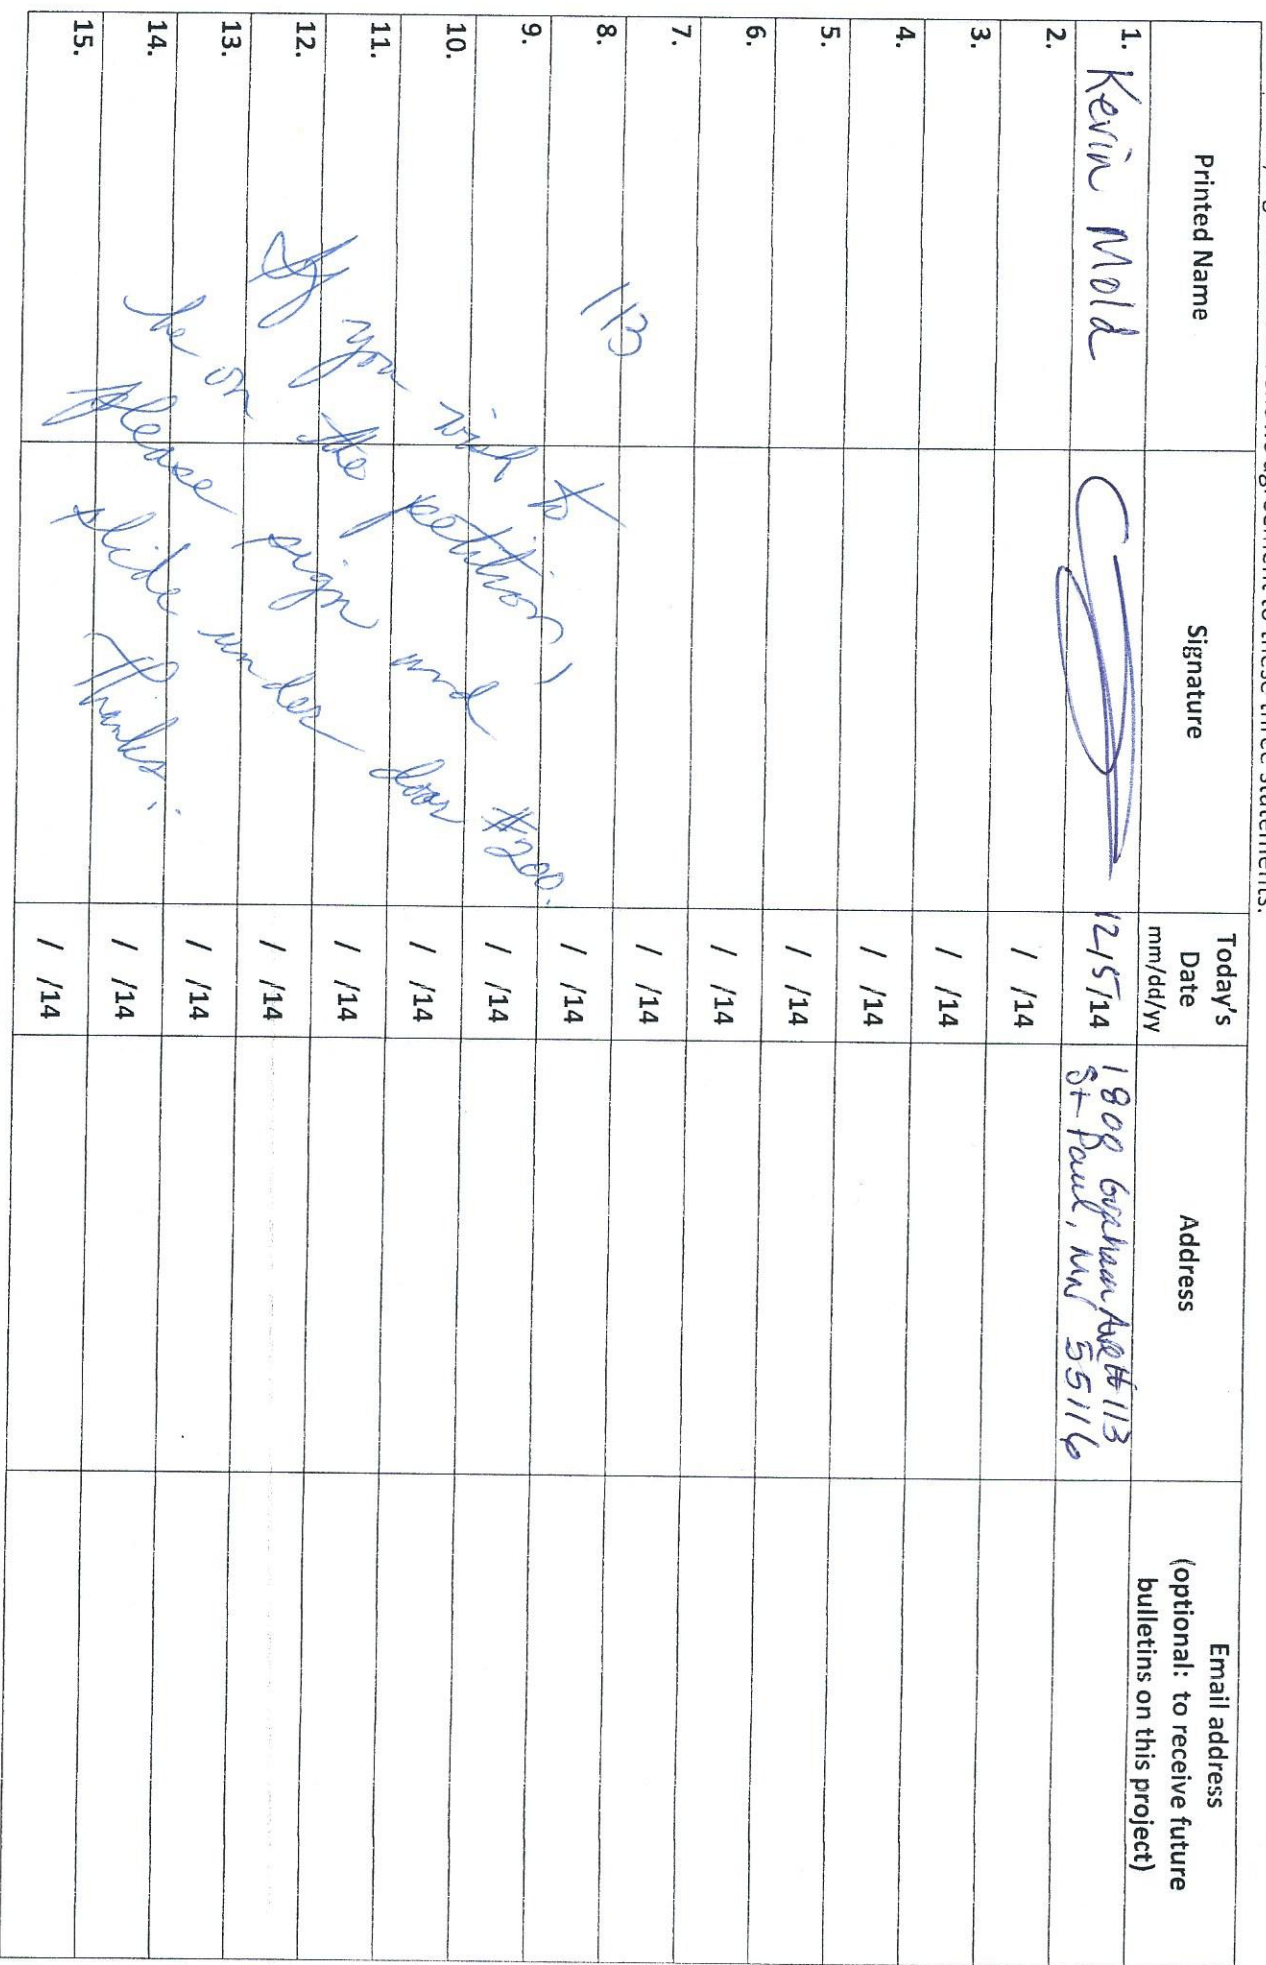 agreement to these three statements.
Printed Name
Signature
Today's
Date
mm/dd/yy
Address
Email address
(optional: to receive future
bulletins on this project)
1. Kevin Mold
12/5/14
1808 Graham Ave # 113
St Paul, MN 55116
2.
/ /14
3.
/ /14
4.
/ /14
5.
/ /14
6.
/ /14
7.
/ /14
8.
/ /14
9.
/ /14
10.
/ /14
11.
/ /14
12.
/ /14
13.
/ /14
14.
/ /14
15.
/ /14
113
If you wish to
be on the petition,
please sign and
slide under door #200.
Thanks!